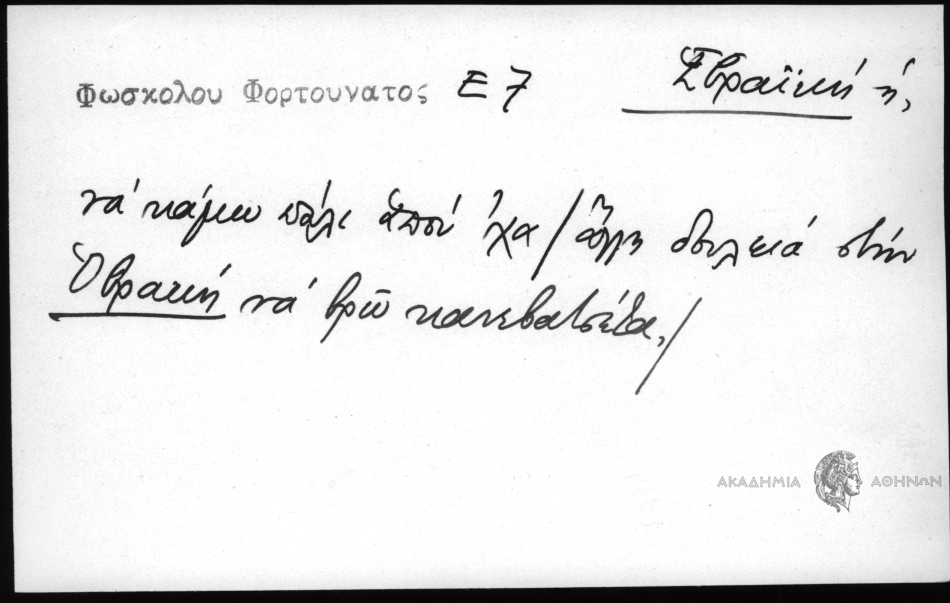 Φωσκολου Φορτουνατος Ε 7
Ἑβραϊκή ἡ,
νά κάμω πάλι ἀποὺ 'χα / ἄλλη δουλειά στήν
Ὀβρακή νά βρῶ κανεβατσέτα, /
ΑΚΑΔΗΜΙΑ ΑΘΗΝΩΝ